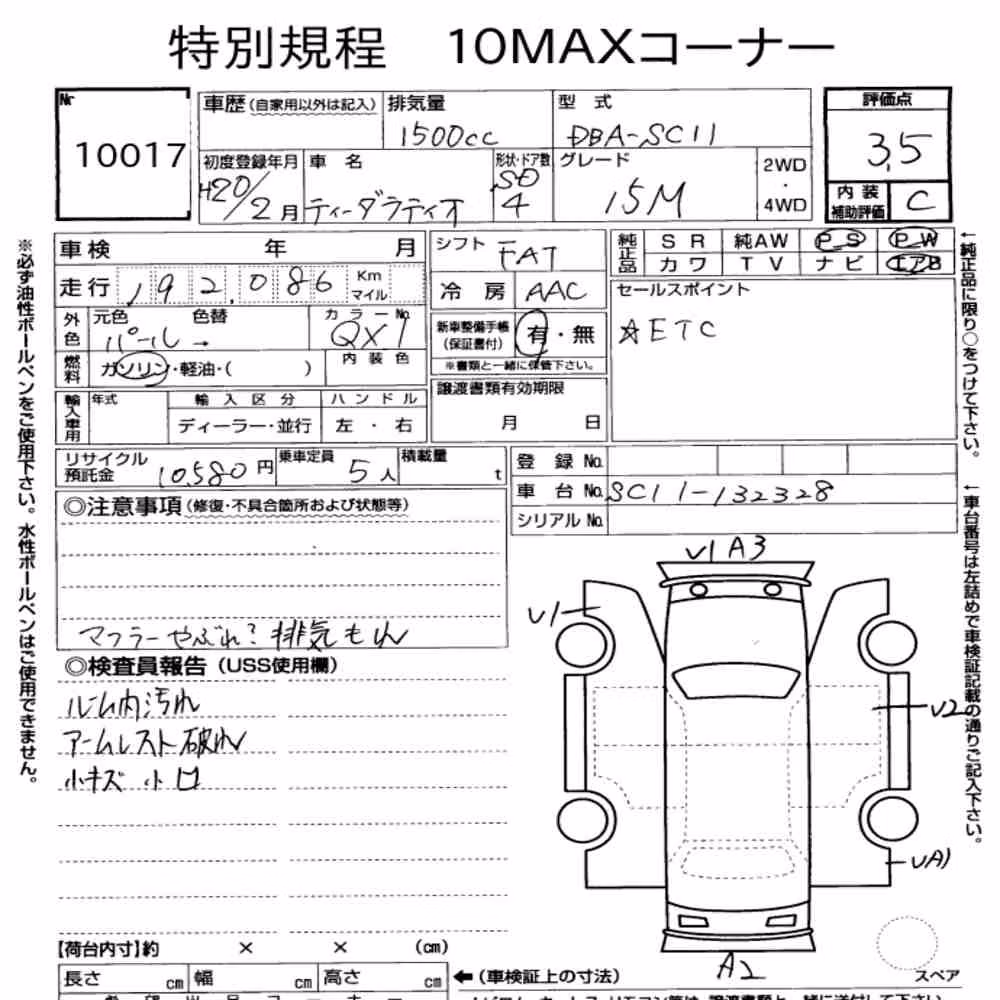 特別規程 10MAXコーナー
Nr 10017
車歴(自家用以外は記入)
排気量 1500cc
型式 DBA-SC11
評価点 3.5
内装補助評価 C
初度登録年月 H20/2月
車名 ティーダラティオ
形状・ドア数 SD 4
グレード 15M
2WD・4WD
車検 年 月
走行 192,086 Km マイル
外色 元色 パール 色替 →
カラーNo. QX1
燃料 ガソリン・軽油・( )
内装色
輸入車用 年式 輸入区分 ハンドル
ディーラー・並行 左・右
シフト FAT
冷房 AAC
新車整備手帳(保証書付) 有・無
※書類と一緒に保管下さい。
譲渡書類有効期限
月 日
純正品 SR 純AW PS PW
カワ TV ナビ エアB
セールスポイント
☆ETC
リサイクル預託金 10,580円
乗車定員 5人
積載量 t
登録No.
車台No. SC11-132328
シリアルNo.
◎注意事項(修復・不具合箇所および状態等)
マフラーやぶれ?排気もれ
◎検査員報告(USS使用欄)
ルーム内汚れ
アームレスト破れ
小キズ 小凹
V1 A3
V1
V2
VA1
A2
スペア
【荷台内寸】約 × × (cm)
長さ cm 幅 cm 高さ cm
←(車検証上の寸法)
※必ず油性ボールペンをご使用下さい。水性ボールペンはご使用できません。
←純正品に限り○をつけて下さい。
←車台番号は左詰めで車検証記載の通りご記入下さい。